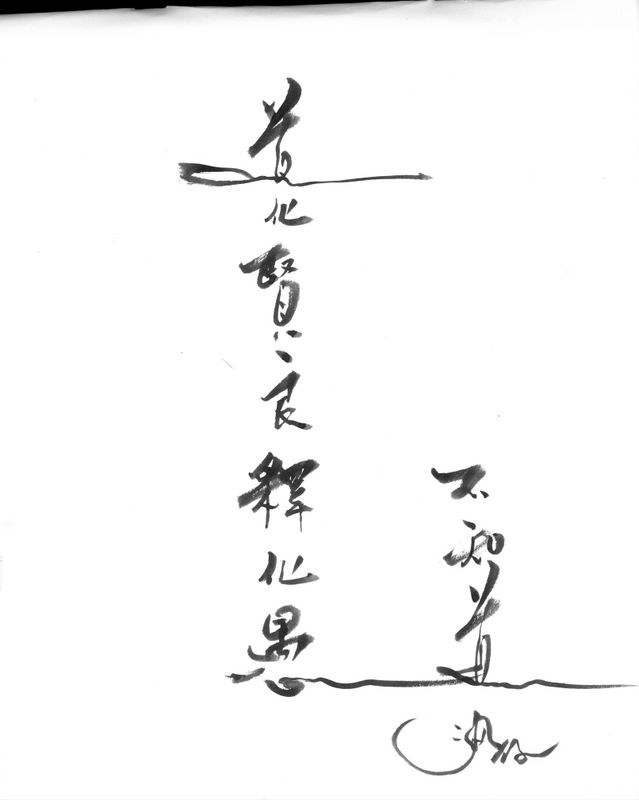 道化賢良釋化愚
不知道